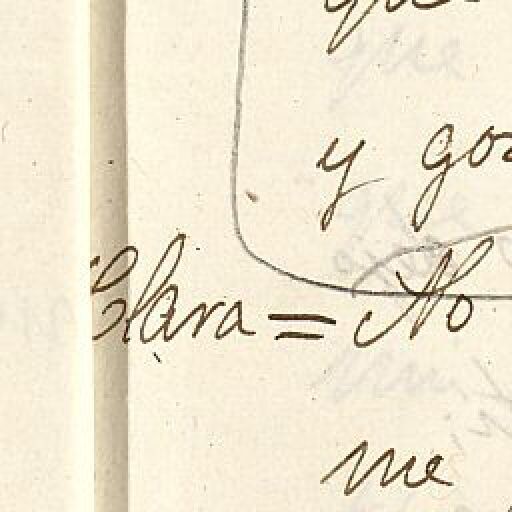 y go
Clara = No
me